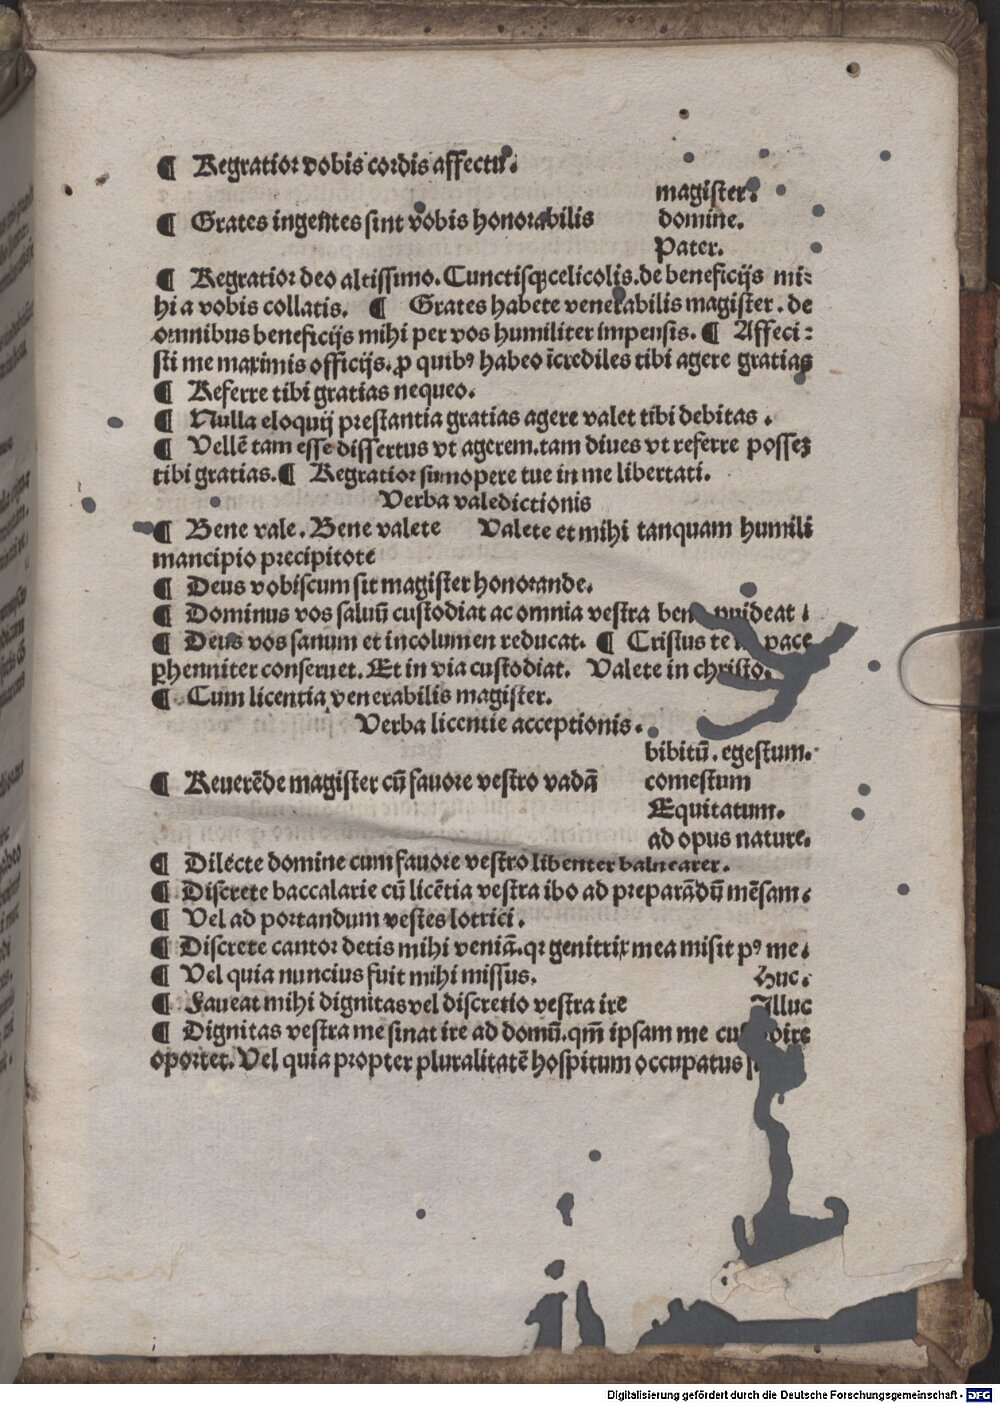 ¶ Regratior vobis cordis affectu.
magister.
¶ Grates ingentes sint vobis honorabilis domine.
Pater.
¶ Regratior deo altissimo. Cunctisqꝫ celicolis. de beneficijs mi⸗
hi a vobis collatis. ¶ Grates habete venerabilis magister. de
omnibus beneficijs mihi per vos humiliter impensis. ¶ Affeci⸗
sti me maximis officijs. ꝓ quibꝰ habeo īcrediles tibi agere gratias
¶ Referre tibi gratias nequeo.
¶ Nulla eloquij prestantia gratias agere valet tibi debitas.
¶ Vellē tam esse dissertus vt agerem. tam diues vt referre possez
tibi gratias. ¶ Regratior sumopere tue in me libertati.
Verba valedictionis
¶ Bene vale. Bene valete Valete et mihi tanquam humili
mancipio precipitote
¶ Deus vobiscum sit magister honorande.
¶ Dominus vos saluū custodiat ac omnia vestra uideat.
¶ Deus vos sanum et incolumen reducat. ¶ Cristus te pace
ꝑhenniter conseruet. Et in via custodiat. Valete in christo.
¶ Cum licentia venerabilis magister.
Verba licentie acceptionis.
bibitū. egestum.
¶ Reuerēde magister cū fauore vestro vadā comestum
Equitatum.
ad opus nature.
¶ Dilecte domine cum fauore vestro libenter balnearer.
¶ Discrete baccalarie cū licētia vestra ibo ad preparādū mēsam.
¶ Vel ad portandum vestes lotrici.
¶ Discrete cantor detis mihi veniā. qꝛ genitrix mea misit pꝰ me.
¶ Vel quia nuncius fuit mihi missus. Huc.
¶ Faueat mihi dignitas vel discretio vestra ire Illuc
¶ Dignitas vestra me sinat ire ad domū. qm̄ ipsam me
oportet. Vel quia propter pluralitatē hospitum occupatus
Digitalisierung gefördert durch die Deutsche Forschungsgemeinschaft - DFG